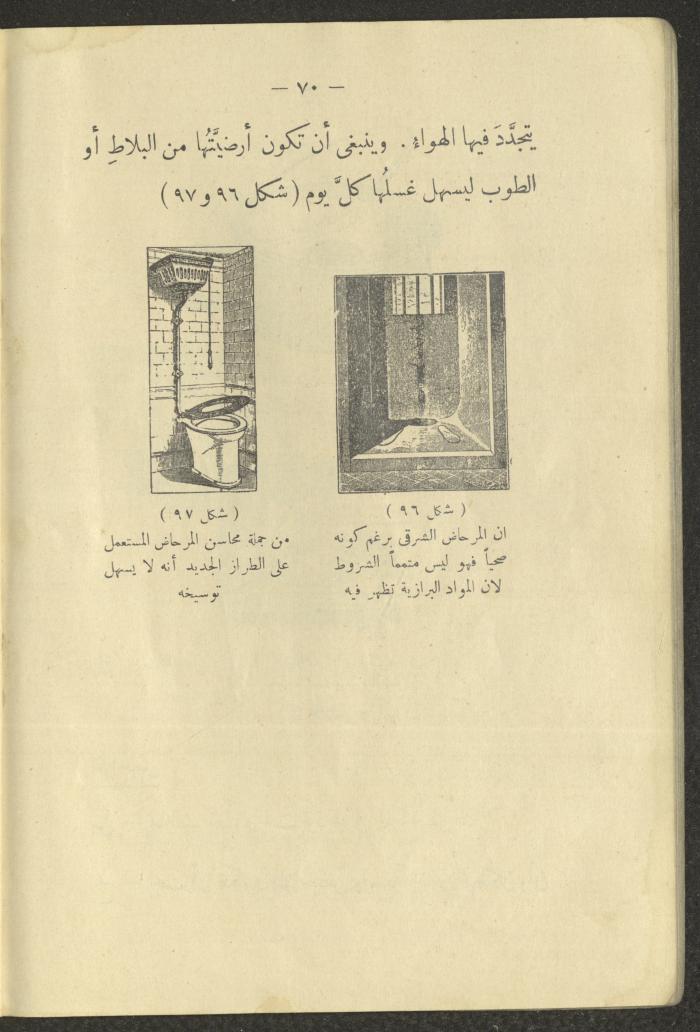 — ٧٠ —
يتجدَّدَ فيها الهواءُ . وينبغى أن تكون أرضيَّتُها من البلاطِ أو
الطوب ليسهل غسلُها كلَّ يوم ( شكل ٩٦ و ٩٧ )
( شكل ٩٦ )
ان المرحاض الشرقى برغم كونه
صحياً فهو ليس متمماً الشروط
لان المواد البرازية تظهر فيه
( شكل ٩٧ )
من جملة محاسن المرحاض المستعمل
على الطراز الجديد أنه لا يسهل
توسيخه